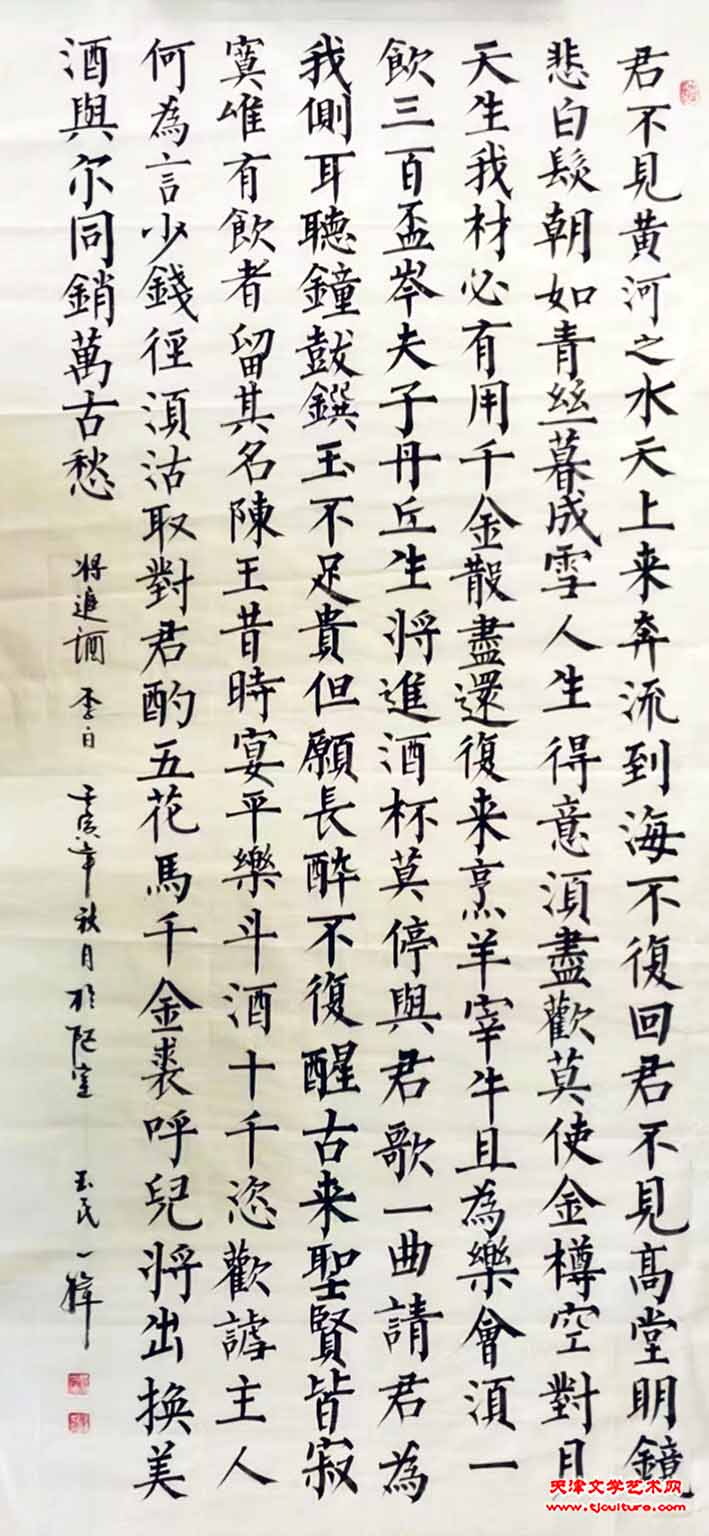 君不見黃河之水天上来奔流到海不復回君不見高堂明鏡
悲白髮朝如青絲暮成雪人生得意須盡歡莫使金樽空對月
天生我材必有用千金散盡還復来烹羊宰牛且為樂會須一
飲三百盃岑夫子丹丘生将進酒杯莫停與君歌一曲請君為
我側耳聽鐘鼓饌玉不足貴但願長醉不復醒古来聖賢皆寂
寞唯有飲者留其名陳王昔時宴平樂斗酒十千恣歡謔主人
何為言少錢徑須沽取對君酌五花馬千金裘呼兒将出換美
酒與尔同銷萬古愁
将進酒 李白 壬寅年秋月於陋室 玉民
天津文学艺术网
www.tjculture.com